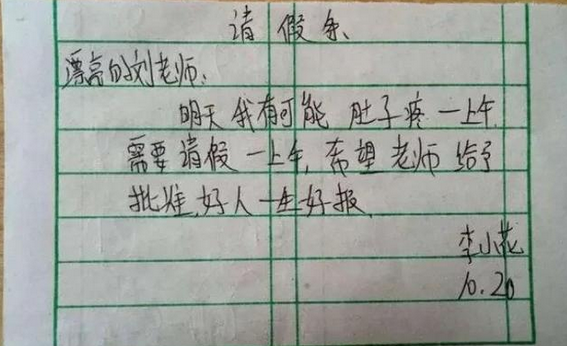 请假条
漂亮的刘老师:
明天我有可能肚子疼一上午
需要请假一上午,希望老师给予
批准,好人一生好报
李小花
10.20